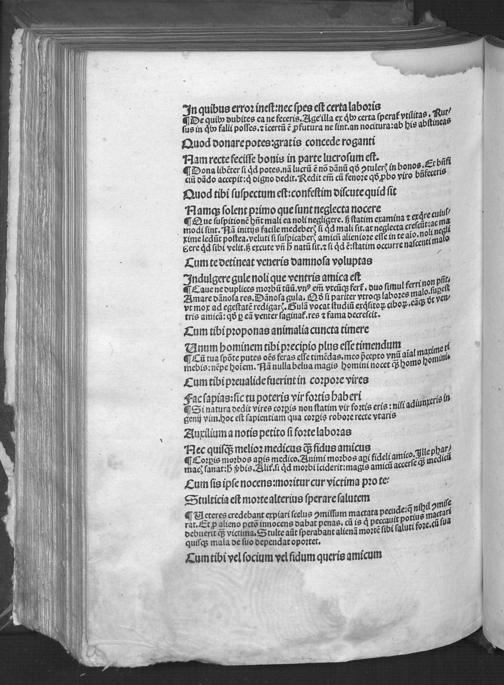 In quibus error inest: nec spes est certa laboris
¶ De quibꝰ dubites ea ne feceris. Age illa ex qͥbꝰ certa speratˀ vtilitas. Rur-
sus in qͥbꝰ falli posses. ⁊ icertū ē ꝓfutura ne sint. an nocitura: ab his abstineas
Quod donare potes: gratis concede roganti
Nam recte fecisse bonis in parte lucrosum est.
¶ Dona libēter si qd potes. nā lucrū ē nō dānū in bonos. Et
cū dādo accepit: q digno dedit. Redit em̄ cū fenore ꝓbo viro
Quod tibi suspectum est: confestim discute quid sit
Namqꝫ solent primo que sunt neglecta nocere
¶ Que suspitionē hn̄t mali ea noli negligere. statim examina ⁊
modi sint. Nā initijs facile si qd mali sit. at neglecta crescūt: ac
xime ledūt postea. veluti si amicū alieniore esse in te aīo. noli
gere qd sibi velit. excute vn̄ natū sit. ⁊ si qd ē: statim occurre nascenti malo
Cum te detineat veneris damnosa voluptas
Indulgere gule noli que ventris amica est
¶ Caue ne duplices morbū tuū. duo simul ferri non
Amare dānosa res. Dānosa gula. si pariter labores malo.
vt mox ad egestatē redigarˀ. Gulā vocat studiū ciborꝫ.
tris amicā: ea venter res ⁊ fama decrescit.
Cum tibi proponas animalia cuncta timere
Unum hominem tibi precipio plus esse timendum
¶ Cū tua spōte putes oēs feras esse timēdas. meo p̄cepto vnū aīal maxime ti
mebis: nēpe hoīem. Nā nulla belua magis homini nocet qꝫ homo
Cum tibi preualide fuerint in corpore vires
Fac sapias: sic tu poteris vir fortis haberi
¶ Si natura dedit vires corpis non statim vir fortis eris: nisi adiunxeris in
genij vim. hoc est sapientiam qua corpis robore recte vtaris
Auxilium a notis petito si forte laboras
Nec quisqꝫ melior medicus qꝫ fidus amicus
¶ Corpis morbos apis medico. Animi morbos api fideli amico. Ille phar-
macꝭ sanat: h̄ ꝟbis. si qd morbi iciderit: magis amicū accerse qꝫ medicū
Cum sis ipse nocens: moritur cur victima pro te:
Stulticia est morte alterius sperare salutem
¶ Ueteres credebant expiari scelus ꝯmissum mactata pecude: nihil ꝯmise
rat. Et ꝓ alieno innocens dabat penas. cū is q peccauit potius mactari
debuerit qꝫ victima. Stulte aūt sperabant alienā mortē sibi saluti fore. cū sua
quisqꝫ mala de suo dependat oportet.
Cum tibi vel socium vel fidum queris amicum